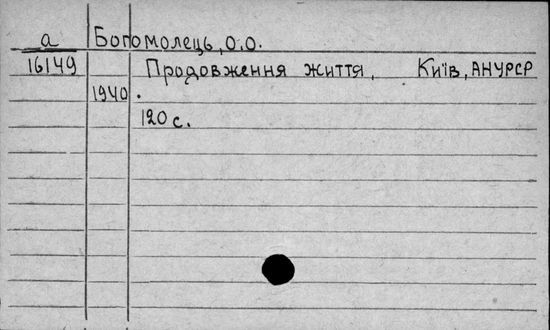 а Богомолець, О.О.
16149 Продовження життя, Київ, АНУРСР
1940.
120 с.